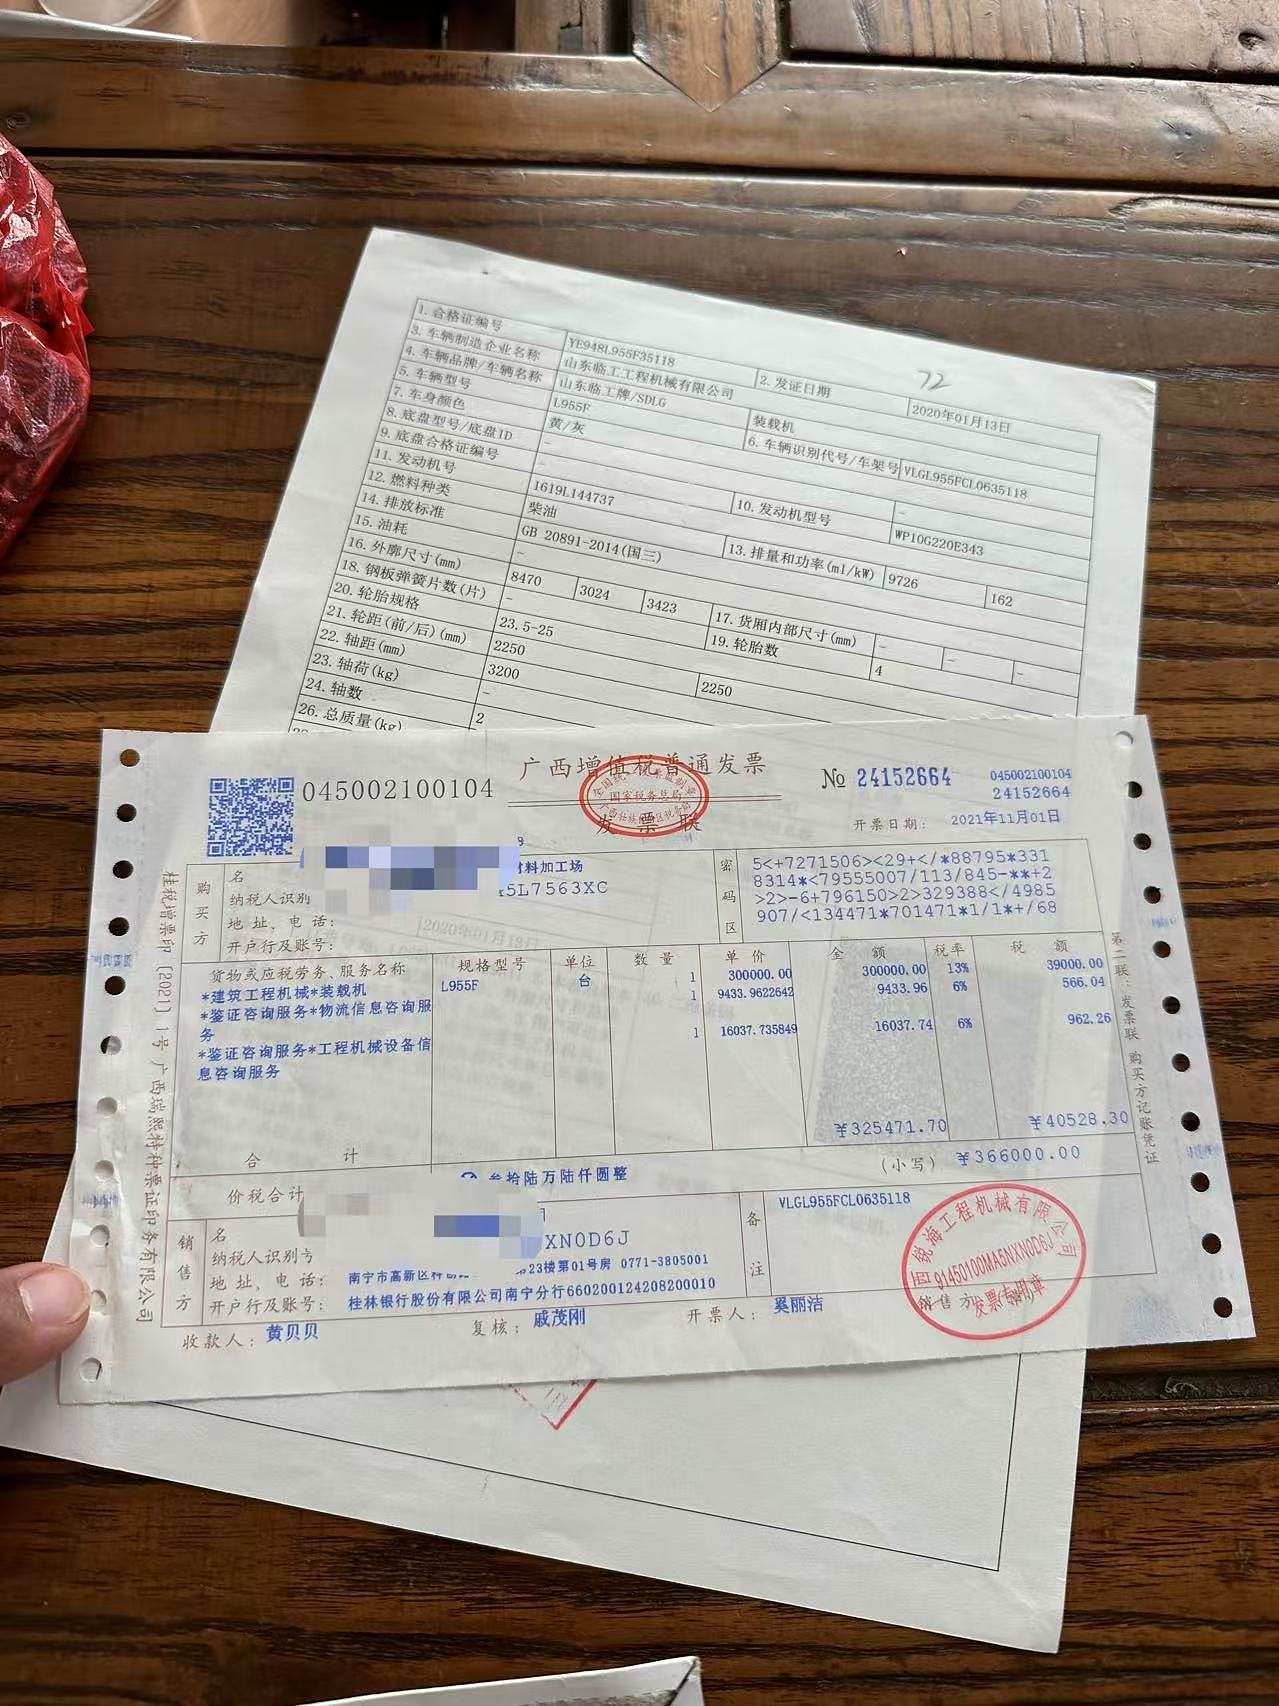 72
1. 合格证编号 YE948L955F35118 2. 发证日期 2020年01月13日
3. 车辆制造企业名称 山东临工工程机械有限公司
4. 车辆品牌/车辆名称 山东临工牌/SDLG 装载机
5. 车辆型号 L955F 6. 车辆识别代号/车架号 VLGL955FCL0635118
7. 车身颜色 黄/灰
8. 底盘型号/底盘ID - -
9. 底盘合格证编号 - 10. 发动机型号 WP10G220E343
11. 发动机号 1619L144737
12. 燃料种类 柴油 13. 排量和功率(ml/kW) 9726 162
14. 排放标准 GB 20891-2014(国三)
15. 油耗 -
16. 外廓尺寸(mm) 8470 3024 3423 17. 货厢内部尺寸(mm) - - -
18. 钢板弹簧片数(片) - 19. 轮胎数 4
20. 轮胎规格 23.5-25
21. 轮距(前/后)(mm) 2250 2250
22. 轴距(mm) 3200
23. 轴荷(kg) -
24. 轴数 2
26. 总质量(kg)
045002100104 广西增值税普通发票 № 24152664 045002100104
24152664
国家税务总局
发票联 开票日期: 2021年11月01日
购买方
名
材料加工场
纳税人识别 5L7563XC
地址、电话:
开户行及账号:
2020年01月13日
密码区
5<+7271506><29+</*88795*331
8314*<79555007/113/845-**+2
>2>-6+796150>2>329388</4985
907/<134471*701471*1/1*+/68
货物或应税劳务、服务名称 规格型号 单位 数量 单价 金额 税率 税额
*建筑工程机械*装载机 L955F 台 1 300000.00 300000.00 13% 39000.00
*鉴证咨询服务*物流信息咨询服务 1 9433.9622642 9433.96 6% 566.04
*鉴证咨询服务*工程机械设备信息咨询服务 1 16037.735849 16037.74 6% 962.26
合计 ¥325471.70 ¥40528.30
价税合计 叁拾陆万陆仟圆整 (小写) ¥366000.00
销售方
名
纳税人识别号 XN0D6J
地址、电话: 南宁市高新区科 23楼第01号房 0771-3805001
开户行及账号: 桂林银行股份有限公司南宁分行660200124208200010
备注
VLGL955FCL0635118
收款人: 黄贝贝 复核: 戚茂刚 开票人: 奚丽洁 销售方
锐海工程机械有限公司
91450100MA5NXN0D6J
发票专用章
桂税增票印〔2021〕1号 广西瑞熙特种票证印务有限公司
第二联:发票联 购买方记账凭证